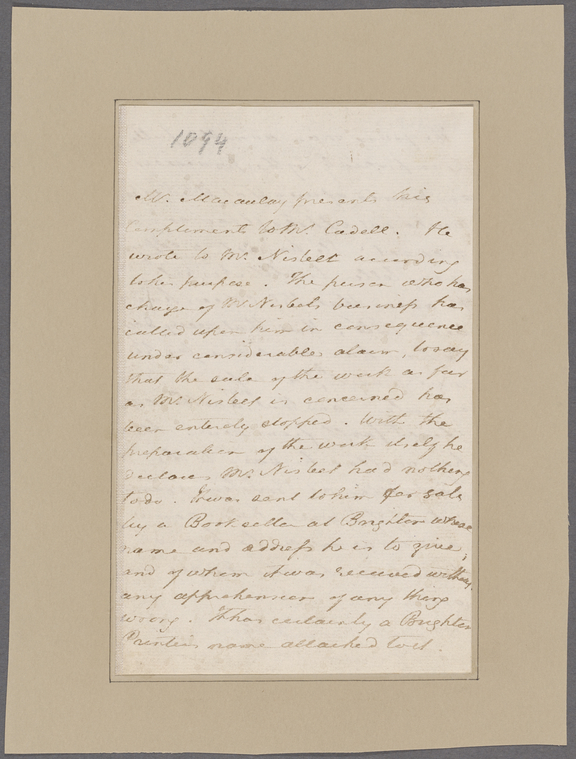 1094
Mr. Macaulay presents his
compliments to Mr. Cadell. He
wrote to Mr. Nisbett according
to his purpose. The person who has
charge of Mr Nisbets business has
called upon him in consequence
under considerable alarm, to say
that the sale of the work as far
as Mr. Nisbett is concerned has
been entirely stopped. With the
preparation of the work itself he
declares Mr. Nisbet had nothing
to do. It was sent to him for sale
by a Bookseller at Brighton whose
name and address he is to give,
and of whom it was received without
any apprehension of any thing
wrong. It has certainly a Brighton
Printers name attached to it.